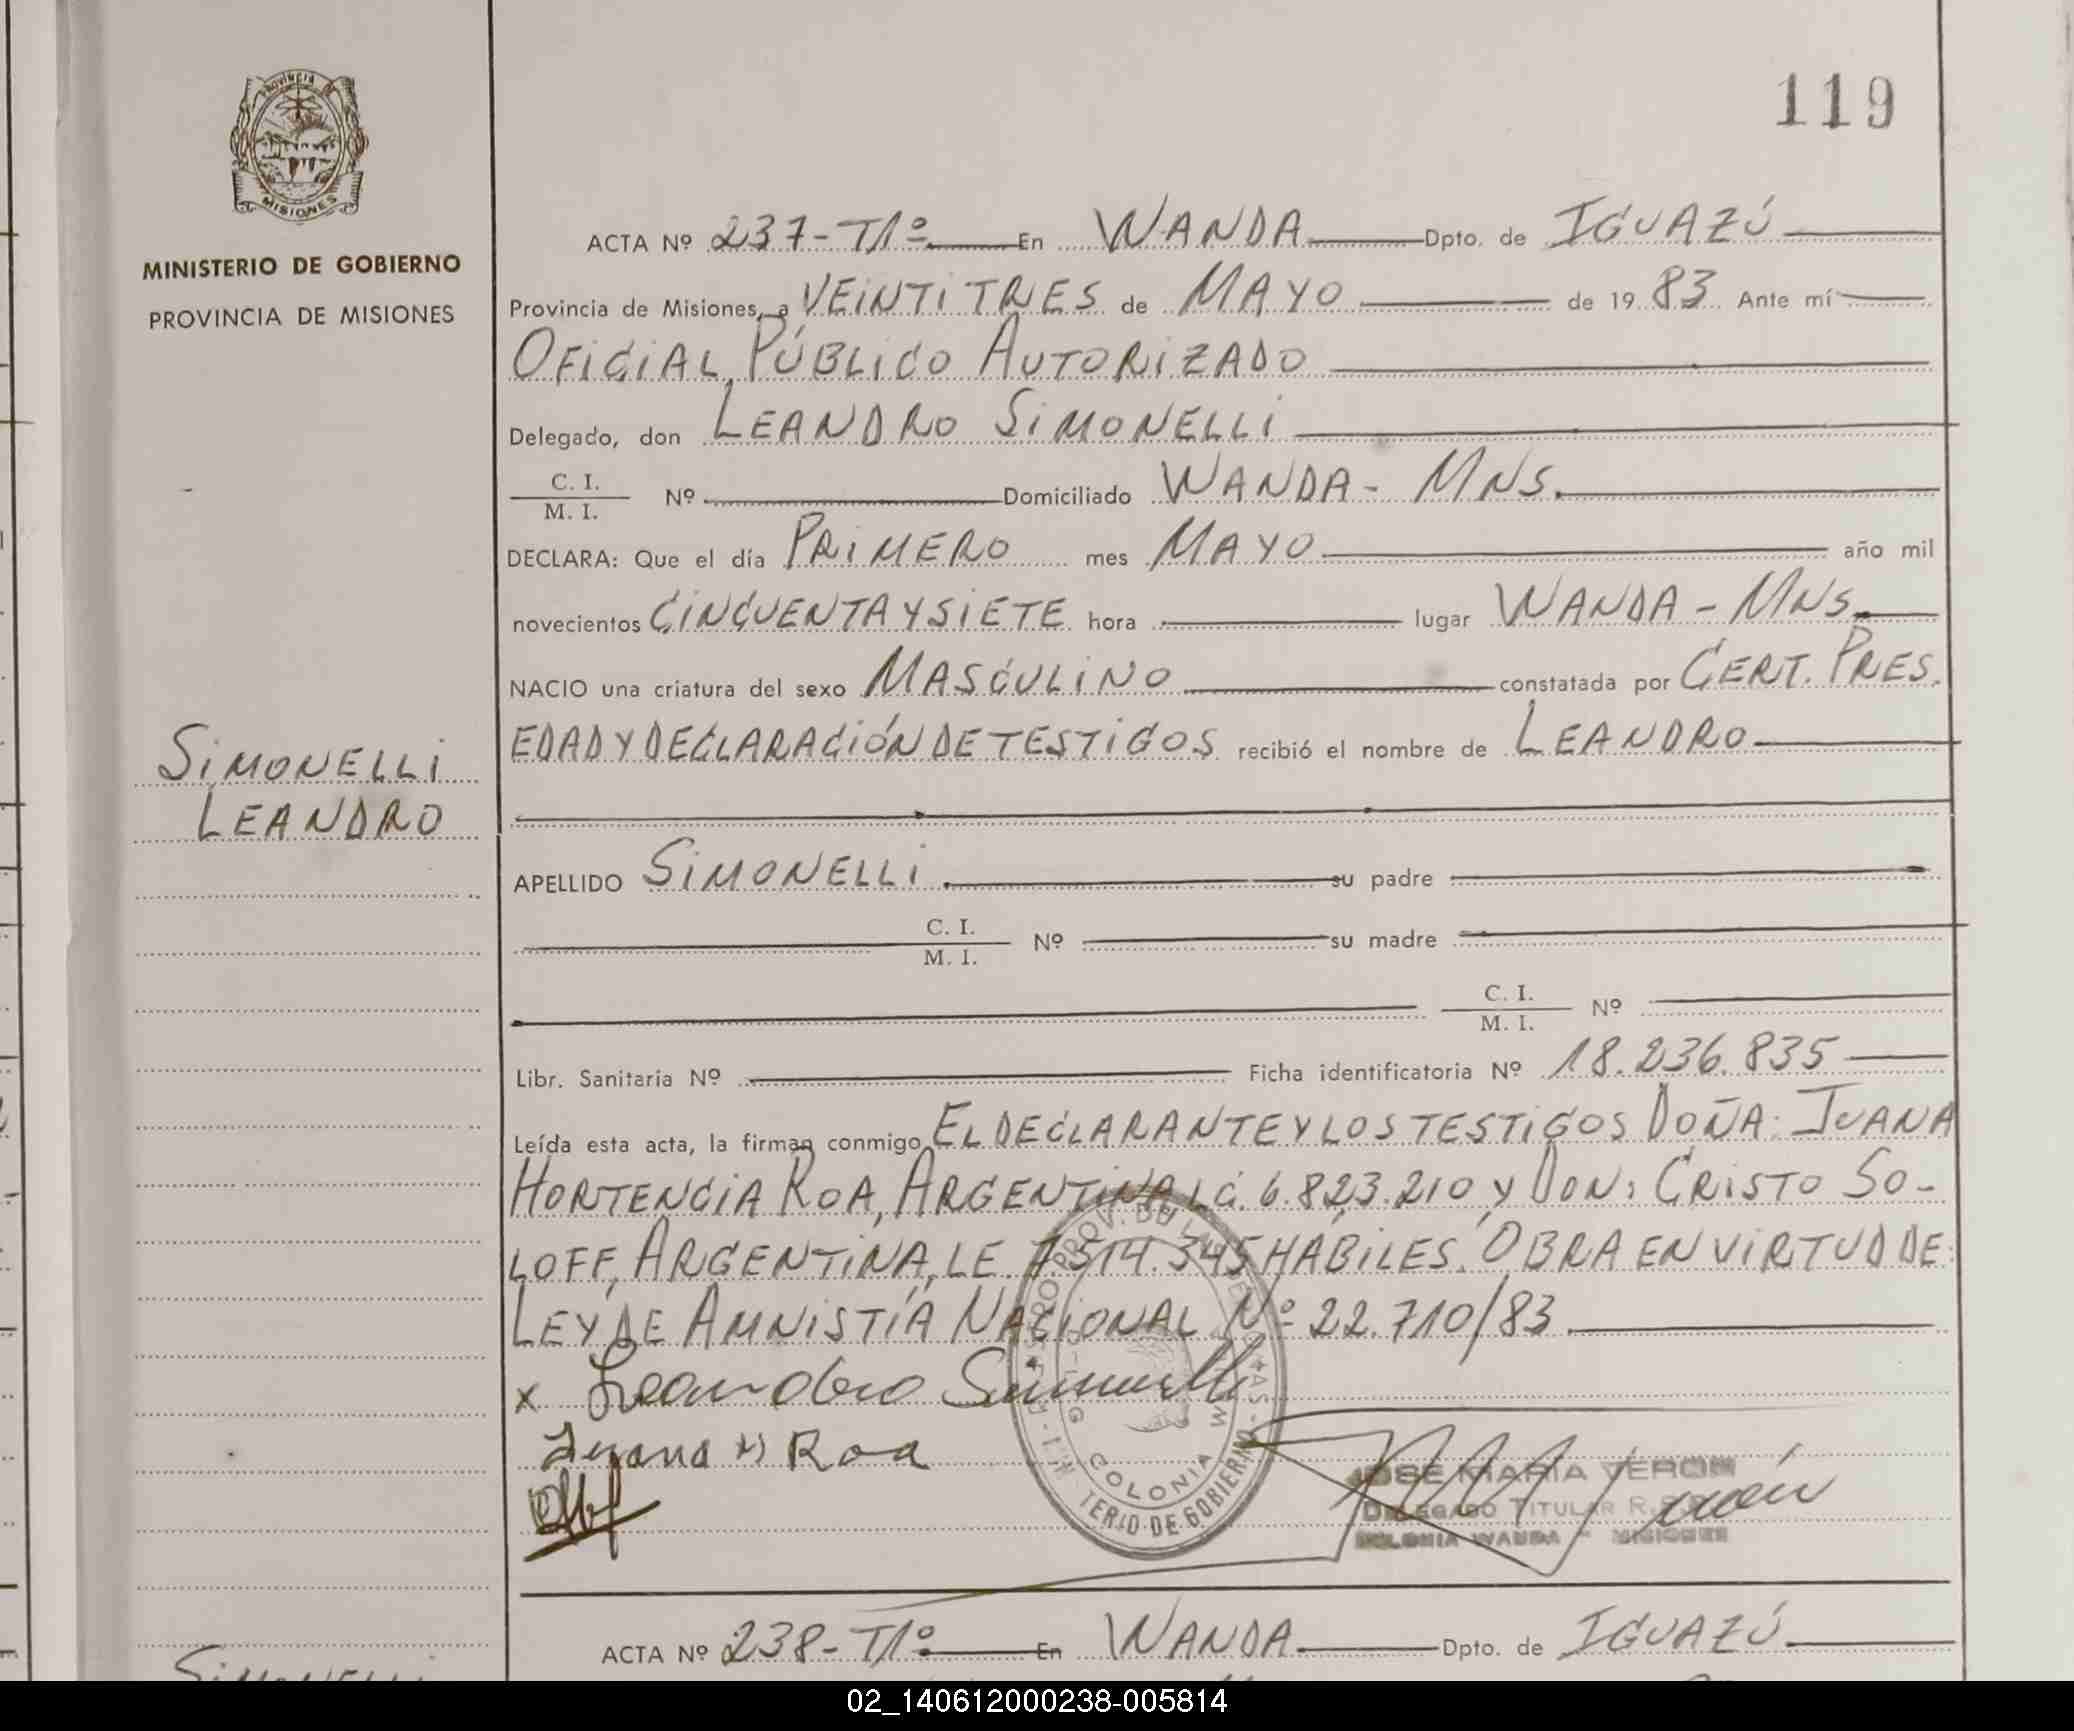 119
PROVINCIA DE
MISIONES
MINISTERIO DE GOBIERNO
PROVINCIA DE MISIONES
ACTA Nº 237-T1º En WANDA Dpto. de IGUAZÚ
Provincia de Misiones, a VEINTITRES de MAYO de 1983 Ante mí
OFICIAL PÚBLICO AUTORIZADO
Delegado, don LEANDRO SIMONELLI
C. I.
M. I. Nº Domiciliado WANDA - MNS.
DECLARA: Que el día PRIMERO mes MAYO año mil
novecientos CINCUENTA Y SIETE hora lugar WANDA - MNS.
NACIO una criatura del sexo MASCULINO constatada por CERT. PRES.
EDAD Y DECLARACIÓN DE TESTIGOS recibió el nombre de LEANDRO
SIMONELLI
LEANDRO
APELLIDO SIMONELLI su padre
C. I.
M. I. Nº su madre
C. I.
M. I. Nº
Libr. Sanitaria Nº Ficha identificatoria Nº 18.236.835
Leída esta acta, la firman conmigo EL DECLARANTE Y LOS TESTIGOS DOÑA: JUANA
HORTENCIA ROA, ARGENTINA, L.C. 6.823.210 Y DON: CRISTO SO-
LOFF, ARGENTINA, LE. 7.514.345 HÁBILES. OBRA EN VIRTUD DE
LEY DE AMNISTÍA NACIONAL Nº 22.710/83
x Leandro Simonelli
Juana H Roa
COLONIA
TERIO DE GOBIERNO
JOSE MARIA VERON
DELEGADO TITULAR R.
COLONIA WANDA - MISIONES
ACTA Nº 238-T1º En WANDA Dpto. de IGUAZÚ
SIMONELLI
02_140612000238-005814